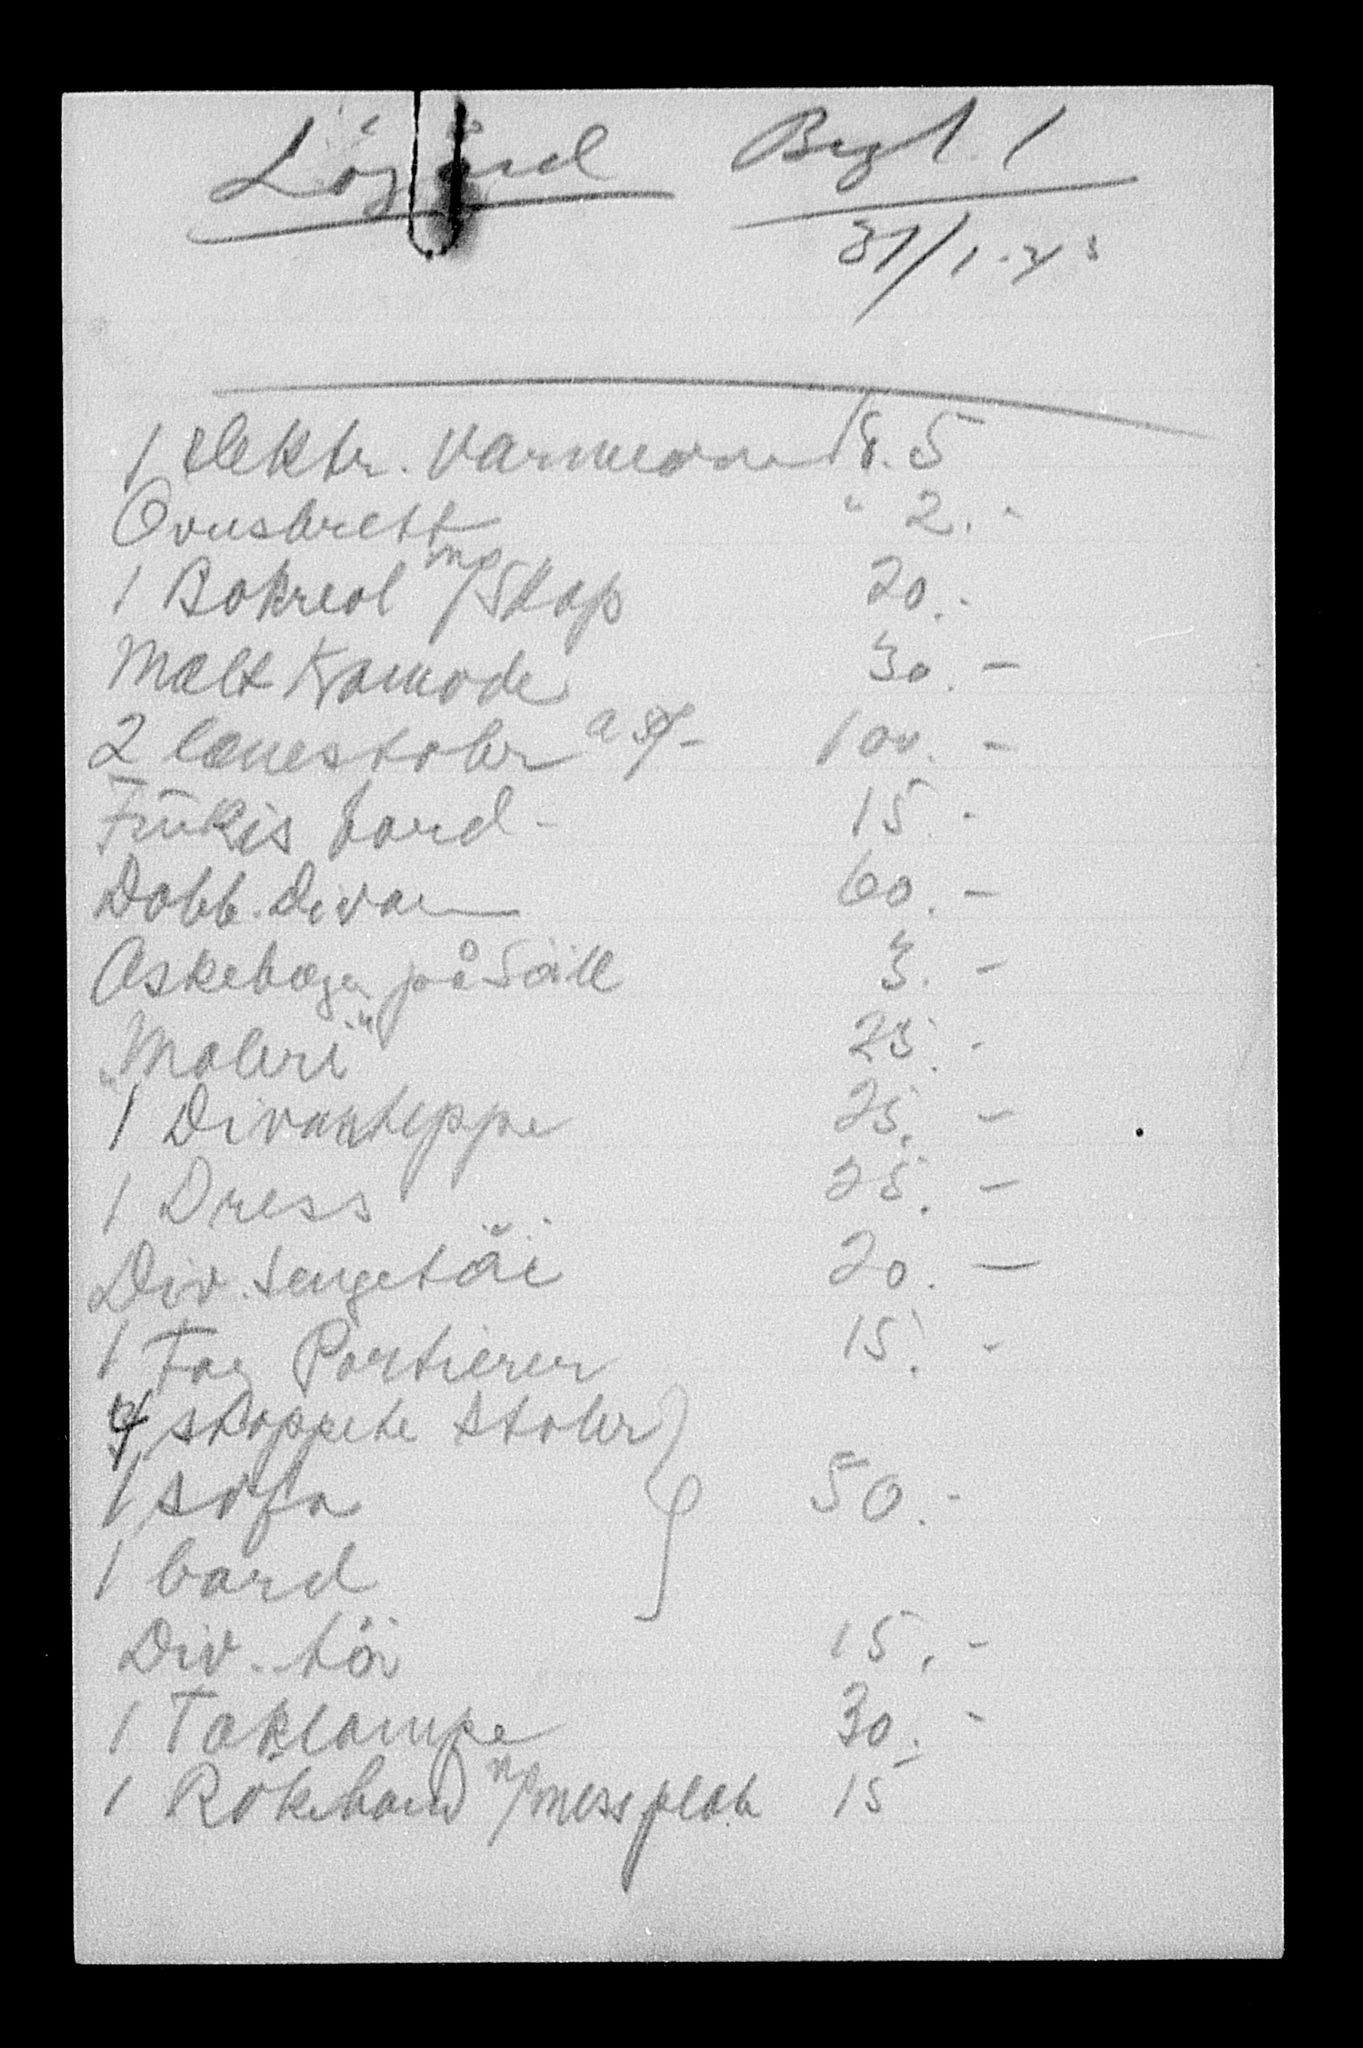 Bezt
31/1.43
1 elektr. varmeovn Kr. 5
Ovnsbrett " 2.-
1 Bokreol m/Skap 20.-
Malt Komode 30.-
2 lænestoler a 50/- 100.-
Funkis bord - 15.-
Dobb. divan 60.-
Askebæger på Söill 3.-
"Maleri" 25.-
1 Divanteppe 25.-
1 Dress 25.-
Div. sengetöi 20.-
1 Fag Portierer 15.-
4 stoppete stoler
1 sofa 50.-
1 bord
Div. töi 15.-
1 Taklampe 30.-
1 Rökebord m/mess plate 15